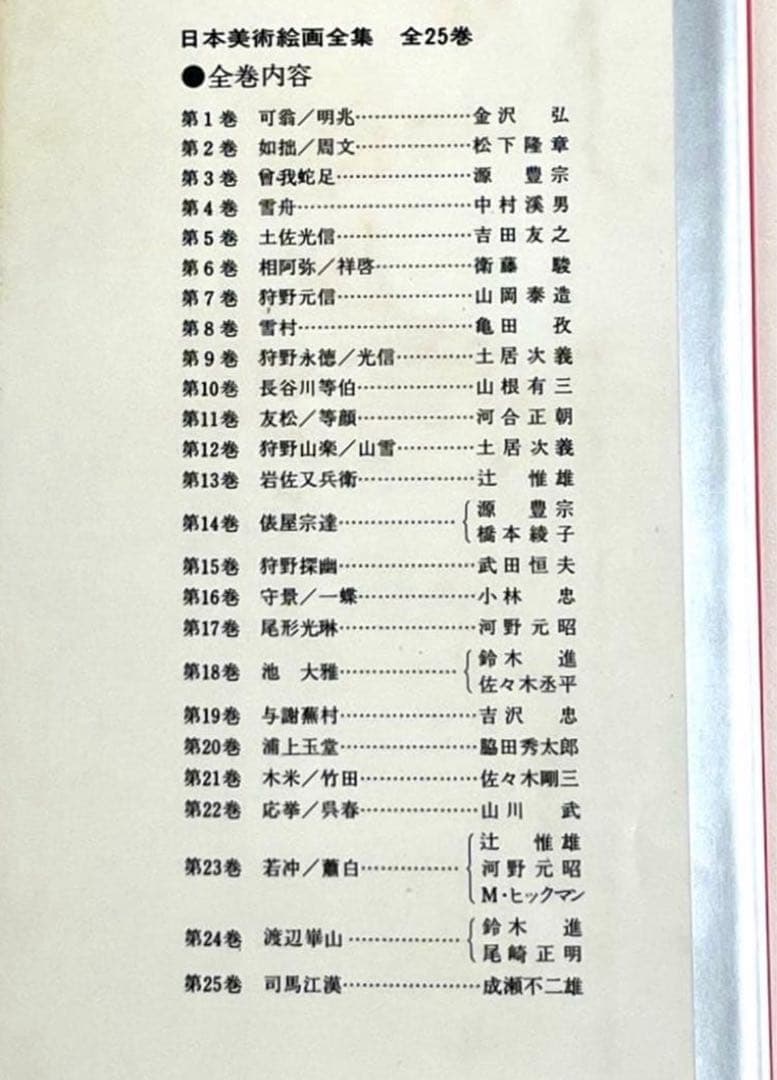 日本美術絵画全集　全25巻
●全巻内容
第1巻　可翁／明兆………………金沢　弘
第2巻　如拙／周文………………松下隆章
第3巻　曾我蛇足…………………源　豊宗
第4巻　雪舟………………………中村溪男
第5巻　土佐光信…………………吉田友之
第6巻　相阿弥／祥啓……………衛藤　駿
第7巻　狩野元信…………………山岡泰造
第8巻　雪村………………………亀田　孜
第9巻　狩野永徳／光信…………土居次義
第10巻　長谷川等伯………………山根有三
第11巻　友松／等顔………………河合正朝
第12巻　狩野山楽／山雪…………土居次義
第13巻　岩佐又兵衛………………辻　惟雄
第14巻　俵屋宗達………………源　豊宗
橋本綾子
第15巻　狩野探幽…………………武田恒夫
第16巻　守景／一蝶………………小林　忠
第17巻　尾形光琳…………………河野元昭
第18巻　池　大雅………………鈴木　進
佐々木丞平
第19巻　与謝蕪村…………………吉沢　忠
第20巻　浦上玉堂…………………脇田秀太郎
第21巻　木米／竹田………………佐々木剛三
第22巻　応挙／呉春………………山川　武
第23巻　若冲／蕭白……………辻　惟雄
河野元昭
M・ヒックマン
第24巻　渡辺崋山………………鈴木　進
尾崎正明
第25巻　司馬江漢…………………成瀬不二雄